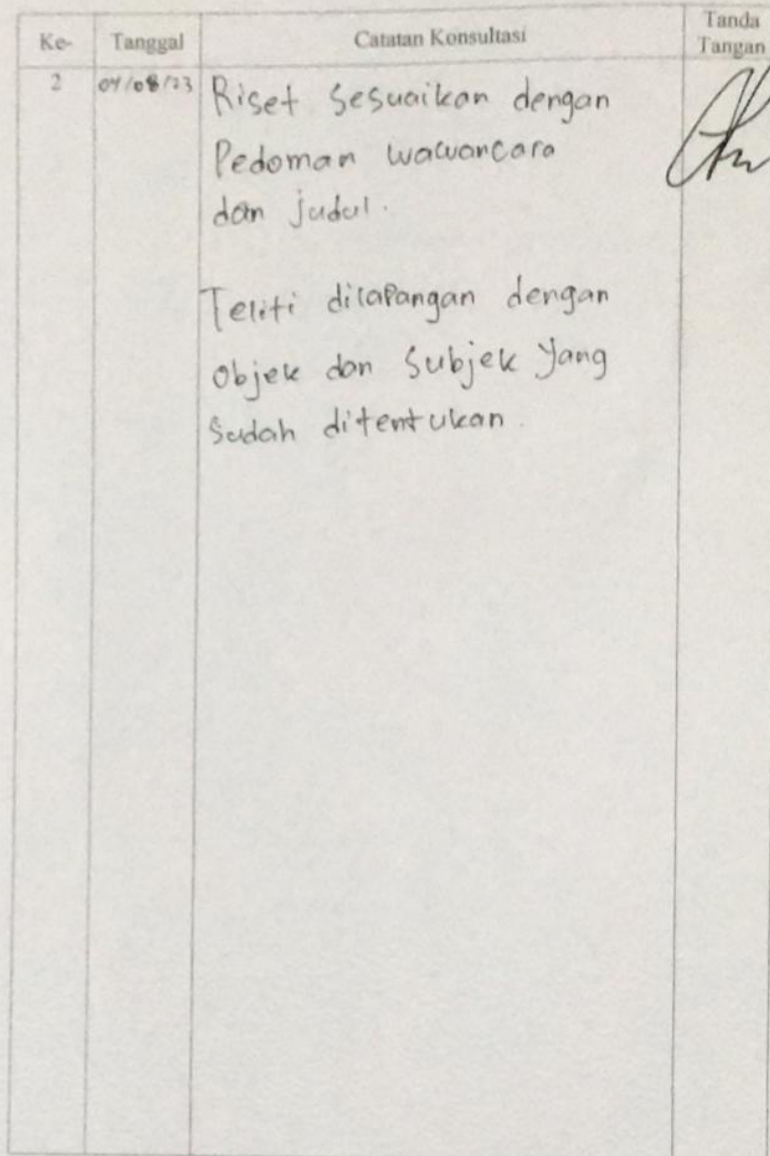 Ke- Tanggal Catatan Konsultasi Tanda Tangan
2 04/08/23 Riset Sesuaikan dengan
Pedoman wawancara
dan judul.
Teliti dilapangan dengan
Objek dan Subjek Yang
Sudah ditentukan.